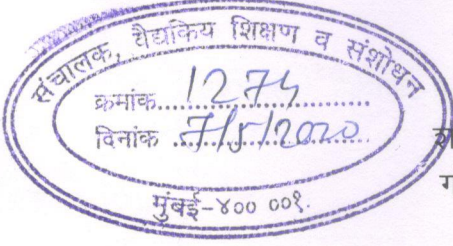 संचालक, वैद्यकिय शिक्षण व संशोधन
क्रमांक 1274
दिनांक 7/5/2020
मुंबई-४०० ००१.